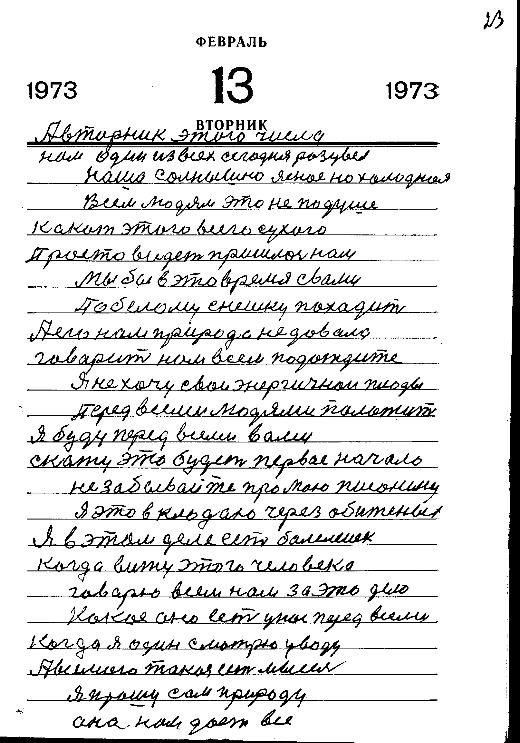 23
ФЕВРАЛЬ
1973 13 1973
ВТОРНИК
Авторник этого числа
нам один из всех сегодня розцвел
наша солнышко ясное но холодная
Всем людям это не подуше
какот этого всего сухого
Просто видет пришлос нам
Мы бы в это время свами
Побелому снешку походит
Аего нам природа недовало
говарит нам всем подождите
Я не хочу свои энергичнои плоды
перед всеми людями палажит
Я буду перед всеми вами
скажу это будет первае начало
незабывайте про маю пшеницу
Я это вклюдаю через
Я в этом деле ест балелшек
Когда вижу этого человека
говарю всем нам за это дело
Какое оно ест у нас перед всеми
Когда я один смотрю уводу
Авсямого такоя ест мысля
Я прошу сам природу
она нам дает все